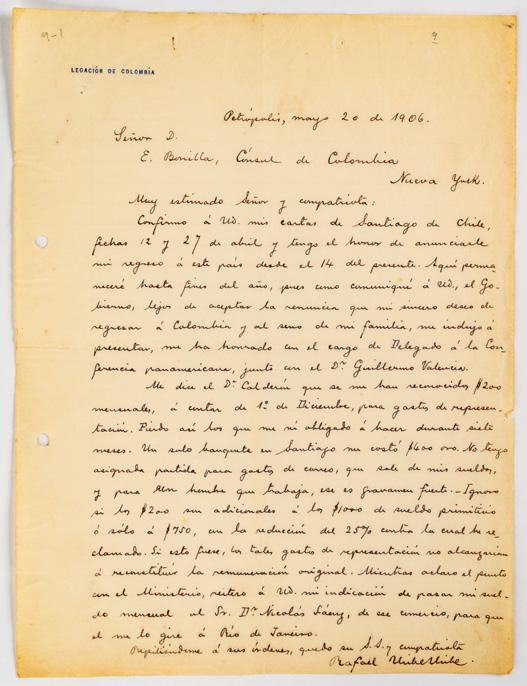 9-1
9
LEGACIÓN DE COLOMBIA
Petrópolis, mayo 20 de 1906.
Señor D.
E. Bonilla, Cónsul de Colombia
Nueva York.
Muy estimado Señor y compatriota:
Confirmo á Ud. mis cartas de Santiago de Chile,
fechas 12 y 27 de abril y tengo el honor de anunciarle
mi regreso á este país desde el 14 del presente. Aquí perma
neceré hasta fines del año, pues como comuniqué á Ud., el Go-
bierno, lejos de aceptar la renuncia que mi sincero deseo de
regresar á Colombia y al seno de mi familia, me indujo á
presentar, me ha honrado con el cargo de Delegado á la Con
ferencia panamericana, junto con el Dr. Guillermo Valencia.
Me dice el Dr. Calderón que se me han reconocidos $200
mensuales, á contar de 1º de Diciembre, para gastos de represen-
tación. Pierdo así los que me ví obligado á hacer durante siete
meses. Un solo banquete en Santiago me costó $400 oro. No tengo
asignada partida para gastos de correo, que sale de mis sueldos,
y para un hombre que trabaja, ese es gravamen fuerte. - Ignoro
si los $200 son adicionales á los $1000 de sueldo primitivo
ó sólo á $750, con la reducción del 25% contra la cual he re-
clamado. Si esto fuere, los tales gastos de representación no alcanzarían
á reconstituir la remuneración original. Mientras aclaro el punto
con el Ministerio, reitero á Ud. mi indicación de pasar mi suel-
do mensual al Sr. Dr. Nicolás Sáenz, de ese comercio, para que
él me lo gire á Río de Janeiro.
Repitiéndome á sus órdenes, quedo su S.S. y compatriota
Rafael Uribe Uribe.